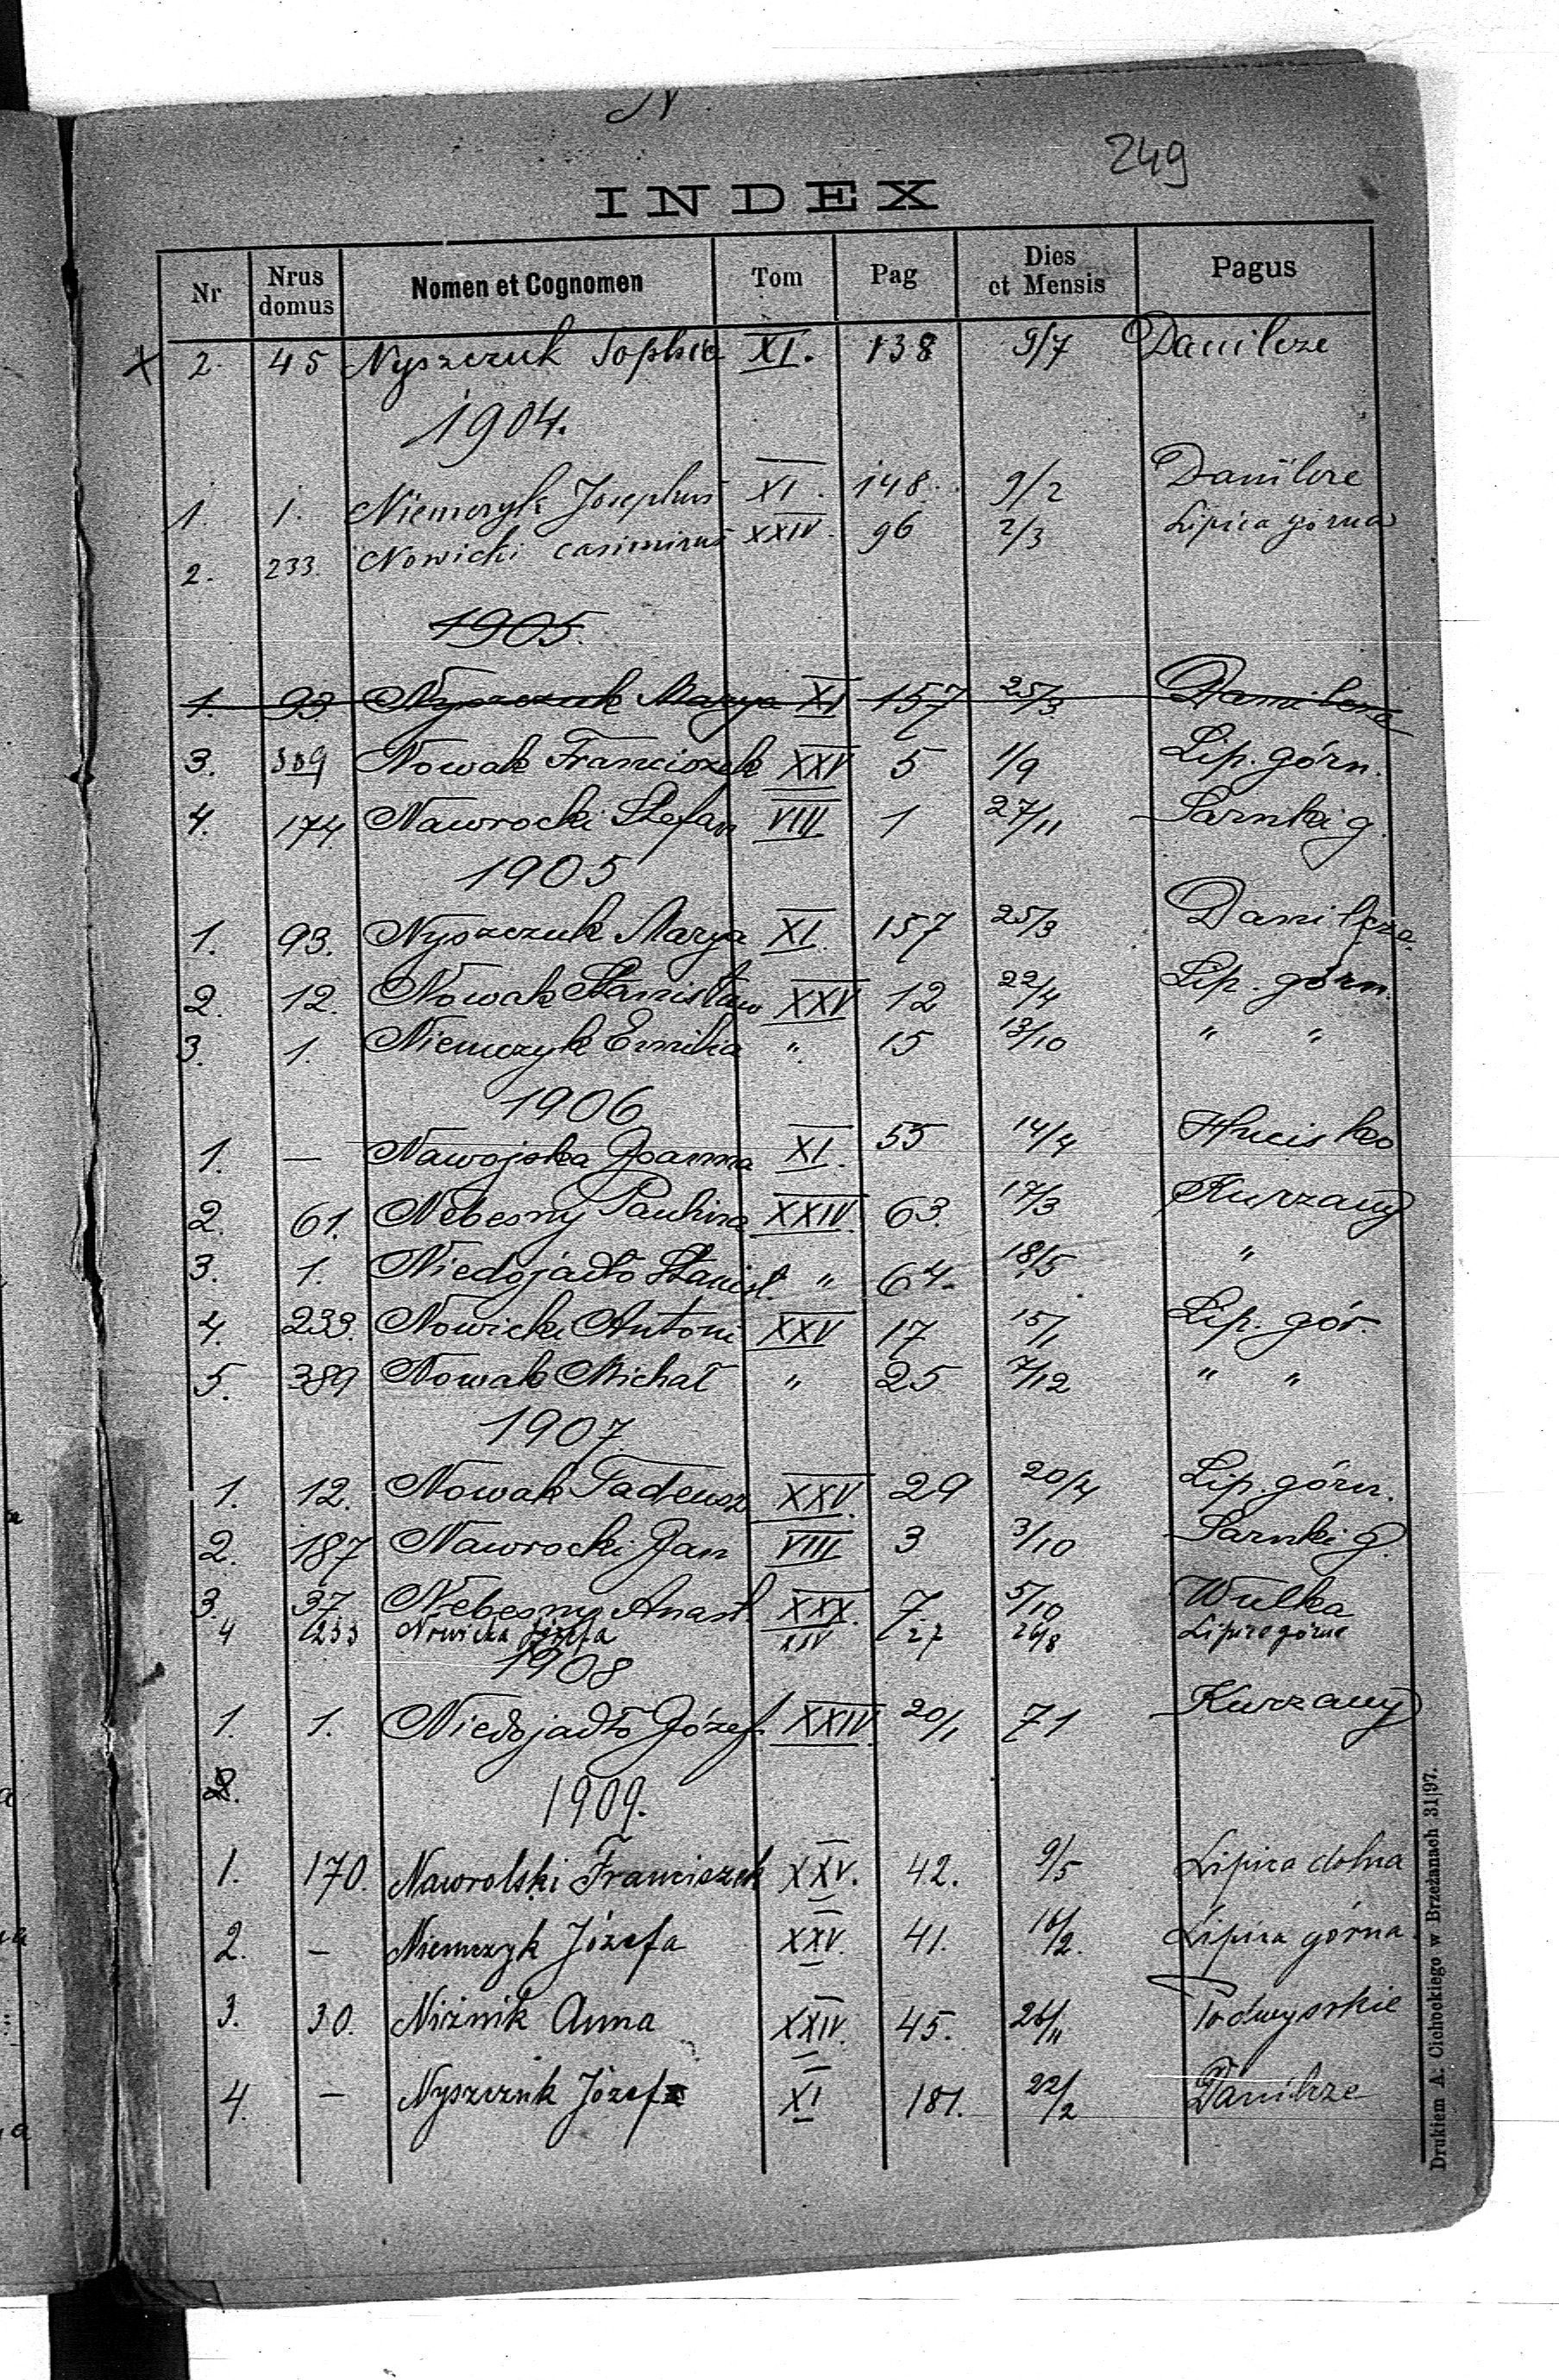 N
249
INDEX
Nr Nrus domus Nomen et Cognomen Tom Pag Dies et Mensis Pagus
X 2. 45 Nyszczuk Sophia XI. 138 9/7 Danilcze
1904.
1. 1. Niemczyk Josephus XI. 148. 9/2 Danilcze
2. 233. Nowicki Casimirus XXIV. 96 2/3 Lipica górna
1905.
1. 93 Nyszczuk Marya XI 157 25/3 Danilcze
3. 389 Nowak Franciszek XXV 5 1/9 Lip. górn.
4. 174 Nawrocki Stefan VIII 1 27/11 Sarnki g.
1905
1. 93. Nyszczuk Marya XI. 157 25/3 Danilcze.
2. 12. Nowak Stanisław XXV 12 22/4 Lip. górn.
3. 1. Niemczyk Emilia " 15 13/10 " "
1906
1. — Nawojska Joanna XI. 55 14/4 Hucisko
2. 61. Nebesny Paulina XXIV. 63. 17/3 Kurzany
3. 1. Niedojadło Stanisł. " 64. 18/5 "
4. 233. Nowicki Antoni XXV 17 15/1 Lip. gór.
5. 389 Nowak Michał " 25 7/12 " "
1907.
1. 12. Nowak Tadeusz XXV. 29 20/4 Lip. górn.
2. 187 Nawrocki Jan VIII 3 3/10 Sarnki g.
3. 37 Nebesny Anast XXX. 7. 5/10 Wulka
4 233 Nowicka Józefa XXV 27 26/8 Lipica górna
1908
1. 1. Niedojadło Józef XXIV. 20/1 71 Kurzany
2.
1909.
1. 170. Nawrolski Franciszek XXV. 42. 9/5 Lipica dolna
2. — Niemczyk Józefa XXV. 41. 16/2. Lipica górna
3. 30. Niżnik Anna XXIV. 45. 26/11 Podwysokie
4. — Nyszczuk Józefa XI 181. 22/2 Danilcze
Drukiem A. Cichockiego w Brzeżanach 31|97.